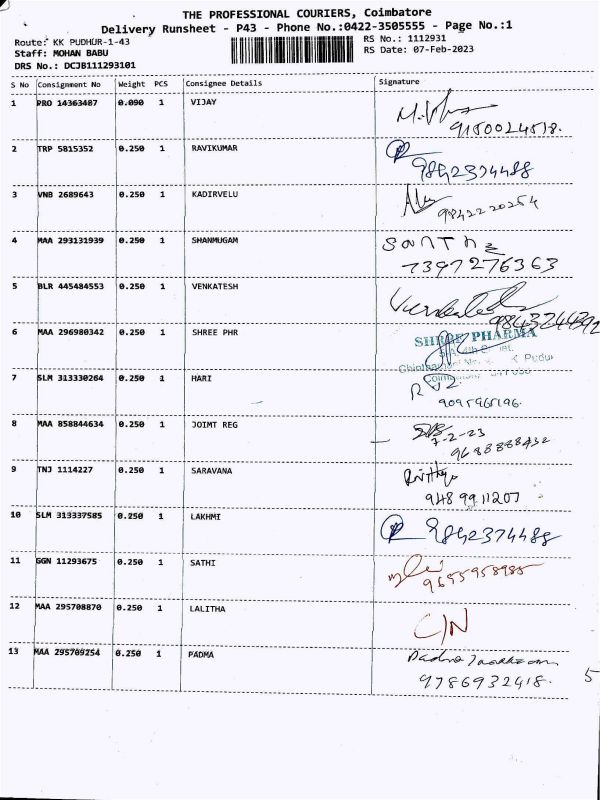 THE PROFESSIONAL COURIERS, Coimbatore
Delivery Runsheet - P43 - Phone No.:0422-3505555 - Page No.:1
Route: KK PUDHUR-1-43
RS No.: 1112931
Staff: MOHAN BABU
RS Date: 07-Feb-2023
DRS No.: DCJB111293101
S No Consignment No Weight PCS Consignee Details Signature
1 PRO 14363487 0.090 1 VIJAY
9150024518.
2 TRP 5815352 0.250 1 RAVIKUMAR
9842374488
3 VNB 2689643 0.250 1 KADIRVELU
9842220254
4 MAA 293131939 0.250 1 SHANMUGAM
7397276363
5 BLR 445484553 0.250 1 VENKATESH
Venkatesh
9843244392
6 MAA 296980342 0.250 1 SHREE PHR
SHREE PHARMA
7 SLM 313330264 0.250 1 HARI
9095965196.
8 MAA 858844634 0.250 1 JOIMT REG
7-2-23
9688888432
9 TNJ 1114227 0.250 1 SARAVANA
9489911207
10 SLM 313337585 0.250 1 LAKHMI
9842374488
11 GGN 11293675 0.250 1 SATHI
9655958985
12 MAA 295708870 0.250 1 LALITHA
C/N
13 MAA 295709254 0.250 1 PADMA
9786932418.
5